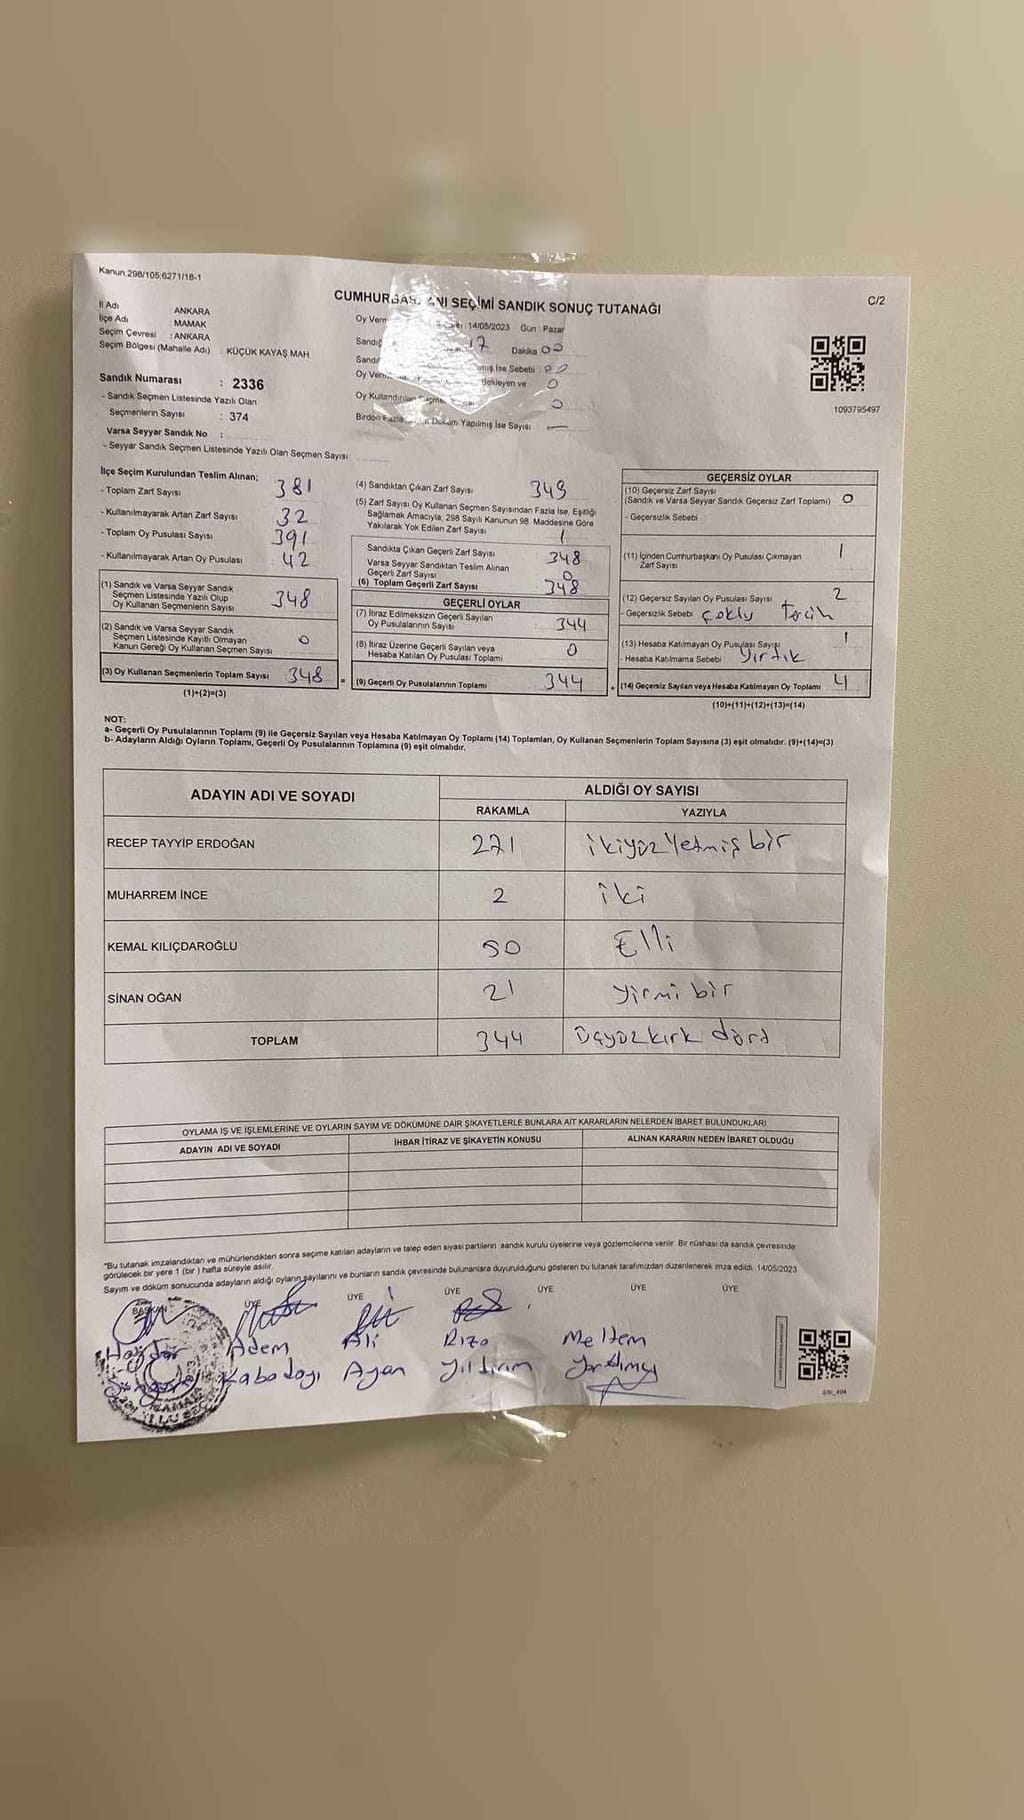 Kanun:298/105;6271/18-1
C/2
CUMHURBAŞ ANI SEÇİMİ SANDIK SONUÇ TUTANAĞI
İl Adı ANKARA
İlçe Adı MAMAK
Seçim Çevresi : ANKARA
Seçim Bölgesi (Mahalle Adı) : KÜÇÜK KAYAŞ MAH.
Sandık Numarası : 2336
- Sandık Seçmen Listesinde Yazılı Olan
Seçmenlerin Sayısı : 374
Varsa Seyyar Sandık No :
- Seyyar Sandık Seçmen Listesinde Yazılı Olan Seçmen Sayısı
Oy Verm 14/05/2023 Gün : Pazar
17 Dakika 00
mış İse Sebebi :
Oy Ver Bekleyen ve 0
Oy Kullandırılan 0
Birden Fazla Döküm Yapılmış İse Sayısı —
1093795497
İlçe Seçim Kurulundan Teslim Alınan;
- Toplam Zarf Sayısı 381
- Kullanılmayarak Artan Zarf Sayısı 32
- Toplam Oy Pusulası Sayısı 391
- Kullanılmayarak Artan Oy Pusulası 42
(1) Sandık ve Varsa Seyyar Sandık
Seçmen Listesinde Yazılı Olup
Oy Kullanan Seçmenlerin Sayısı 348
(2) Sandık ve Varsa Seyyar Sandık
Seçmen Listesinde Kayıtlı Olmayan
Kanun Gereği Oy Kullanan Seçmen Sayısı 0
(3) Oy Kullanan Seçmenlerin Toplam Sayısı 348
(1)+(2)=(3)
(4) Sandıktan Çıkan Zarf Sayısı 349
(5) Zarf Sayısı Oy Kullanan Seçmen Sayısından Fazla İse, Eşitliği
Sağlamak Amacıyla, 298 Sayılı Kanunun 98. Maddesine Göre
Yakılarak Yok Edilen Zarf Sayısı 1
Sandıkta Çıkan Geçerli Zarf Sayısı 348
Varsa Seyyar Sandıktan Teslim Alınan
Geçerli Zarf Sayısı 0
(6) Toplam Geçerli Zarf Sayısı 348
GEÇERLİ OYLAR
(7) İtiraz Edilmeksizin Geçerli Sayılan
Oy Pusulalarının Sayısı 344
(8) İtiraz Üzerine Geçerli Sayılan veya
Hesaba Katılan Oy Pusulası Toplamı 0
= (9) Geçerli Oy Pusulalarının Toplamı 344
GEÇERSİZ OYLAR
(10) Geçersiz Zarf Sayısı
(Sandık ve Varsa Seyyar Sandık Geçersiz Zarf Toplamı) 0
- Geçersizlik Sebebi
(11) İçinden Cumhurbaşkanı Oy Pusulası Çıkmayan
Zarf Sayısı 1
(12) Geçersiz Sayılan Oy Pusulası Sayısı 2
- Geçersizlik Sebebi çoklu tercih
(13) Hesaba Katılmayan Oy Pusulası Sayısı 1
- Hesaba Katılmama Sebebi Yırtık
+ (14) Geçersiz Sayılan veya Hesaba Katılmayan Oy Toplamı 4
(10)+(11)+(12)+(13)=(14)
NOT:
a- Geçerli Oy Pusulalarının Toplamı (9) ile Geçersiz Sayılan veya Hesaba Katılmayan Oy Toplamı (14) Toplamları, Oy Kullanan Seçmenlerin Toplam Sayısına (3) eşit olmalıdır. (9)+(14)=(3)
b- Adayların Aldığı Oyların Toplamı, Geçerli Oy Pusulalarının Toplamına (9) eşit olmalıdır.
ADAYIN ADI VE SOYADI ALDIĞI OY SAYISI
RAKAMLA YAZIYLA
RECEP TAYYİP ERDOĞAN 271 ikiyüzYetmiş bir
MUHARREM İNCE 2 iki
KEMAL KILIÇDAROĞLU 50 Elli
SİNAN OĞAN 21 Yirmi bir
TOPLAM 344 Üçyüzkırk dörd
OYLAMA İŞ VE İŞLEMLERİNE VE OYLARIN SAYIM VE DÖKÜMÜNE DAİR ŞİKAYETLERLE BUNLARA AİT KARARLARIN NELERDEN İBARET BULUNDUKLARI
ADAYIN ADI VE SOYADI İHBAR İTİRAZ VE ŞİKAYETİN KONUSU ALINAN KARARIN NEDEN İBARET OLDUĞU
"Bu tutanak imzalandıktan ve mühürlendikten sonra seçime katılan adayların ve talep eden siyasi partilerin sandık kurulu üyelerine veya gözlemcilerine verilir. Bir nüshası da sandık çevresinde
görülecek bir yere 1 (bir) hafta süreyle asılır.
Sayım ve döküm sonucunda adayların aldığı oyların sayılarını ve bunların sandık çevresinde bulunanlara duyurulduğunu gösteren bu tutanak tarafımızdan düzenlenerek imza edildi. 14/05/2023
BAŞKAN ÜYE ÜYE ÜYE ÜYE ÜYE ÜYE
Haydar Adem Ali Rıza Meltem
Kabadayı Ayan Yıldırım Yardımcı